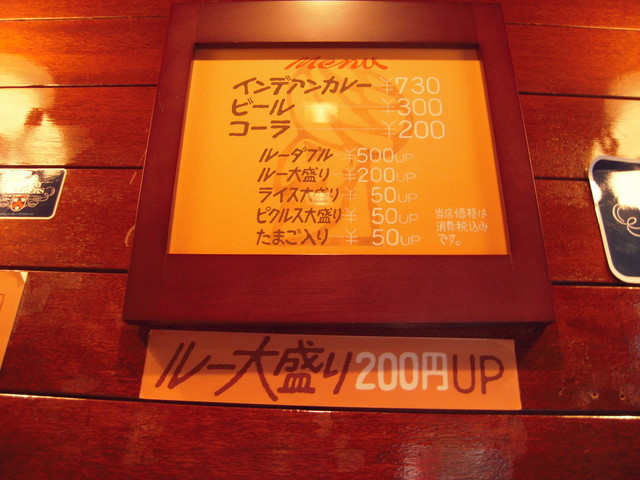 Menu
インデアンカレー ¥730
ビール ¥300
コーラ ¥200
ルーダブル ¥500UP
ルー大盛り ¥200UP
ライス大盛り ¥50UP
ピクルス大盛り ¥50UP
たまご入り ¥50UP
当店価格は
消費税込み
です。
ルー大盛り200円UP